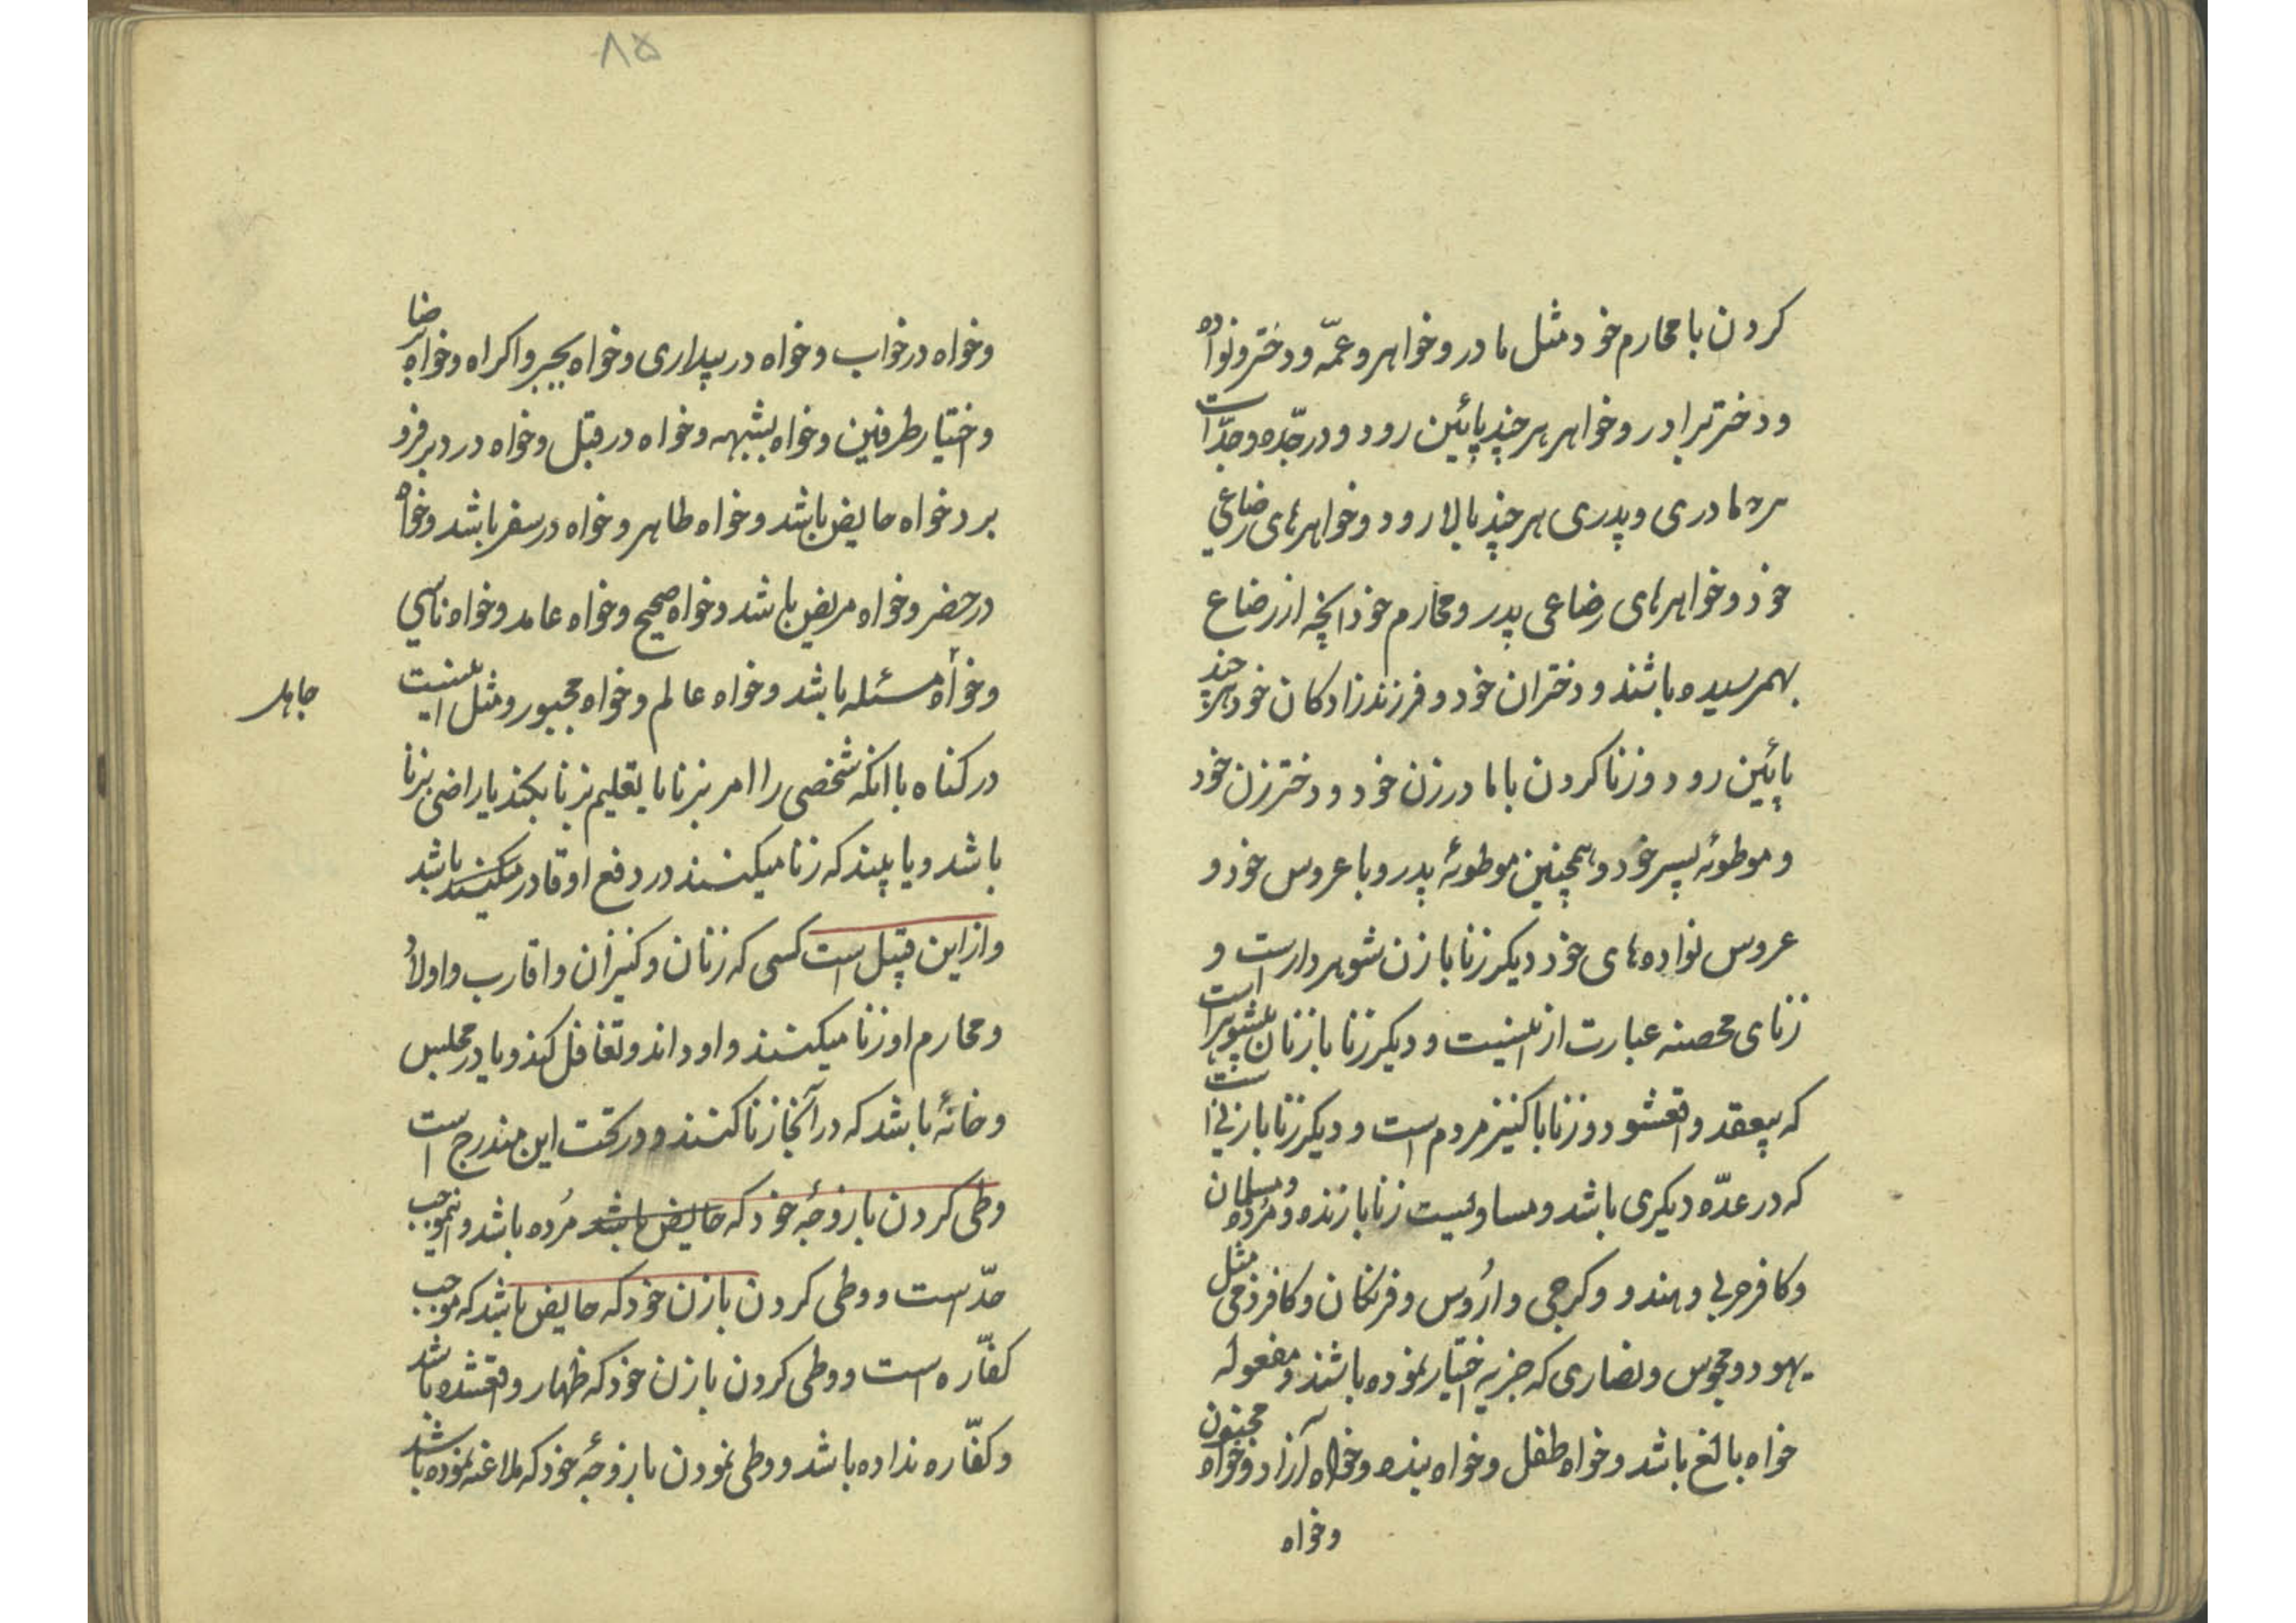 کردن با محارم خود مثل مادر و خواهر و عمّه و دختر و نواده
و دختر برادر و خواهر هر چند پائین رود و در جدّه و جدّات
مادری و پدری هر چند بالا رود و خواهرهای رضاعی
خود و خواهرهای رضاعی پدر و محارم خود انچه از رضاع
بهمرسیده باشند و دختران خود و فرزندزادکان خود هر چند
پائین رود و زنا کردن با مادر زن خود و دختر زن خود
و موطوئه پسر خود و همچنین موطوئهٔ پدر و با عروس خود و
عروس نواده‌های خود دیکر زنا با زن شوهردار است و
زنای محصنه عبارت از اینست و دیکر زنا با زنان بیشوهر است
که بیعقد واقعشود و زنا با کنیز مردم است و دیکر زنا با زنیست
که در عدّه دیکری باشد و مساویست زنا با زنده و مرده و مسلمان
و کافر حربی و هندو و کرجی و ارُوس و فرنکان و کافر ذمی مثل
یهود و مجوس و نصاری که جزیه اختیار نموده باشند و مفعوله
خواه بالغ باشد و خواه طفل و خواه بنده و خواه آزاد و خواه مجنون
و خواه
۸۵
و خواه در خواب و خواه در بیداری و خواه بجبر و اکراه و خواه برضا
و اختیار طرفین و خواه بشبهه و خواه در قبل و خواه در دبر فرو
برد خواه حایض باشد و خواه طاهر و خواه در سفر باشد و خواه
در حضر و خواه مریض باشد و خواه صحیح و خواه عامد و خواه ناسی
و خواه مسئله باشد و خواه عالم و خواه مجبور و مثل اینست
جاهل
در کناه با انکه شخصی را امر بزنا یا تعلیم بزنا بکند یا راضی بزنا
باشد و یا بیند که زنا میکنند در دفع او قادر میکنند باشد
و از این قبیل است کسی که زنان و کنیزان و اقارب و اولاد
و محارم او زنا میکنند و او داند و تغافل کند و یا در مجلس
و خانهٔ باشد که در آنجا زنا کنند و در تحت این مندرج است
وطی کردن با زوجهٔ خود که حایض باشد مُرده باشد و اینموجب
حدّ است و وطی کردن با زن خود که حایض باشد که موجب
کفّاره است و وطی کردن با زن خود که ظهار واقعشده باشد
و کفّاره نداده باشد و وطی نمودن با زوجهٔ خود که ملاعنه نموده باشد